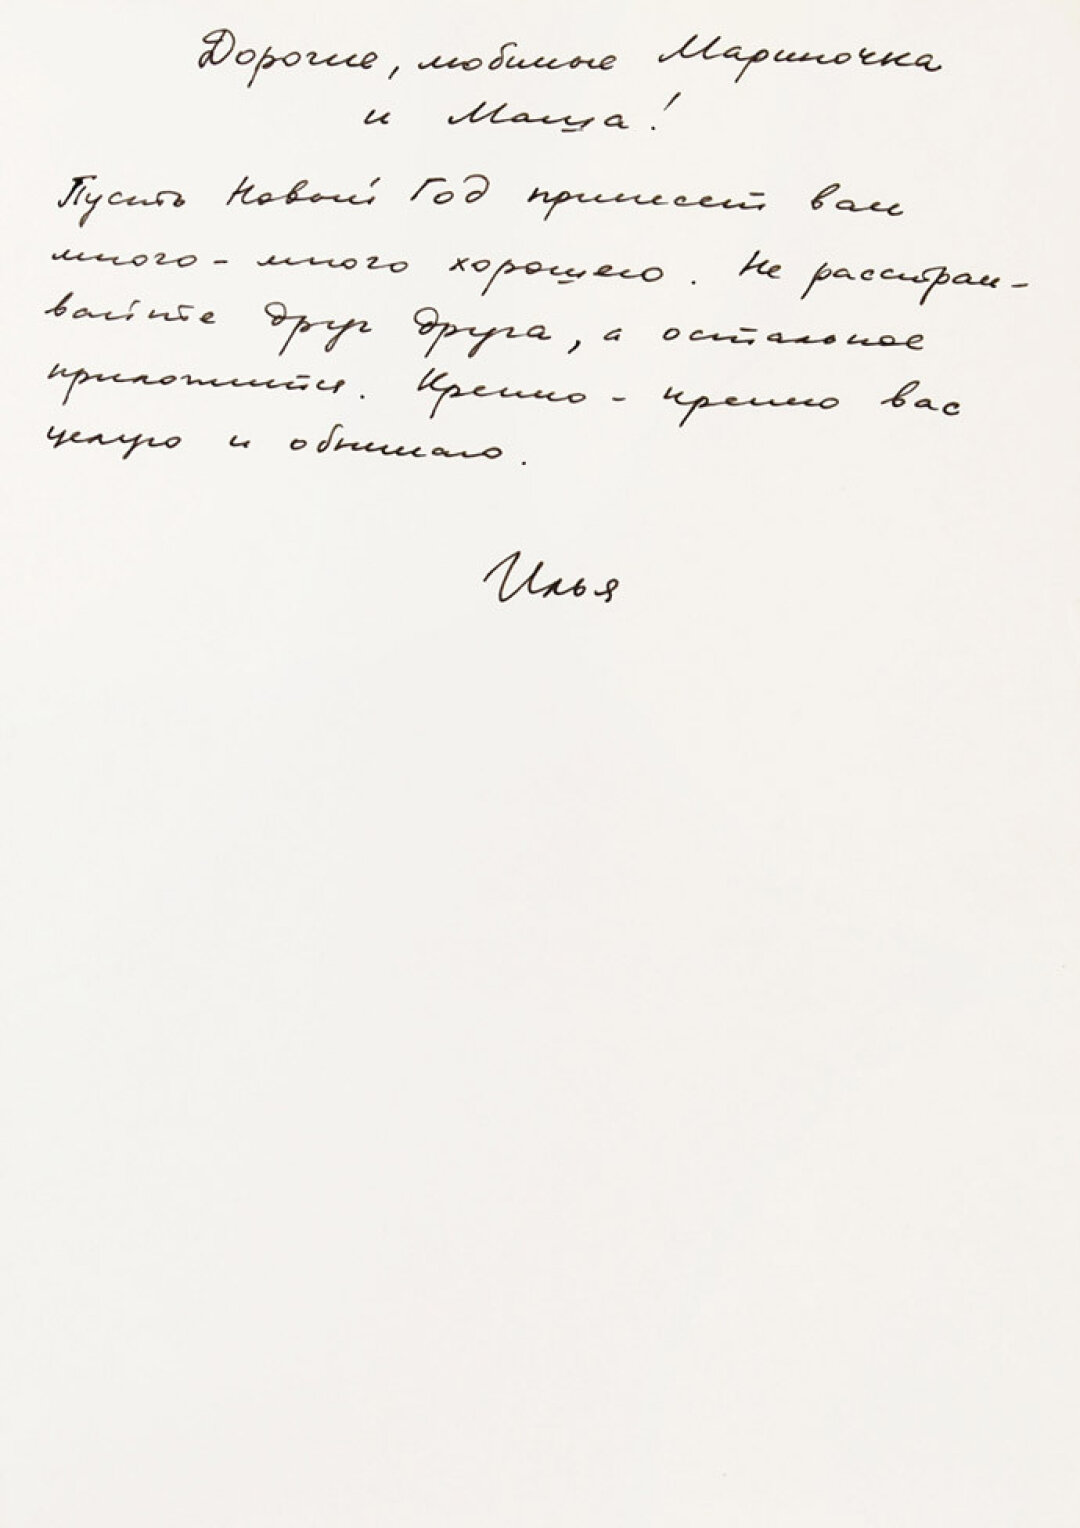 Дорогие, любимые Мариночка
и Маша!
Пусть Новый Год принесет вам
много-много хорошего. Не расстраи-
вайте друг друга, а остальное
приложится. Крепко-крепко вас
целую и обнимаю.
Илья